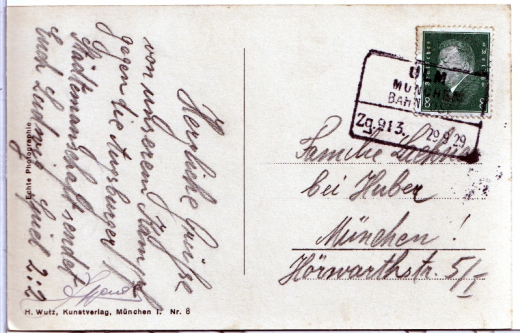 Herzliche Grüsse
von unserem Kampf
gegen die Augsburger
Städtemannschaft sendet
Euch Ludwig Spiel 2:2
Echte Photographie
H. Wutz, Kunstverlag, München I. Nr. 8
ULM
MÜNCHEN
BAHN
Zg.913. 29.9.29
Deutsches Reich
8 8
Familie
bei Huber
München!
Hörwarthstr. 5/I